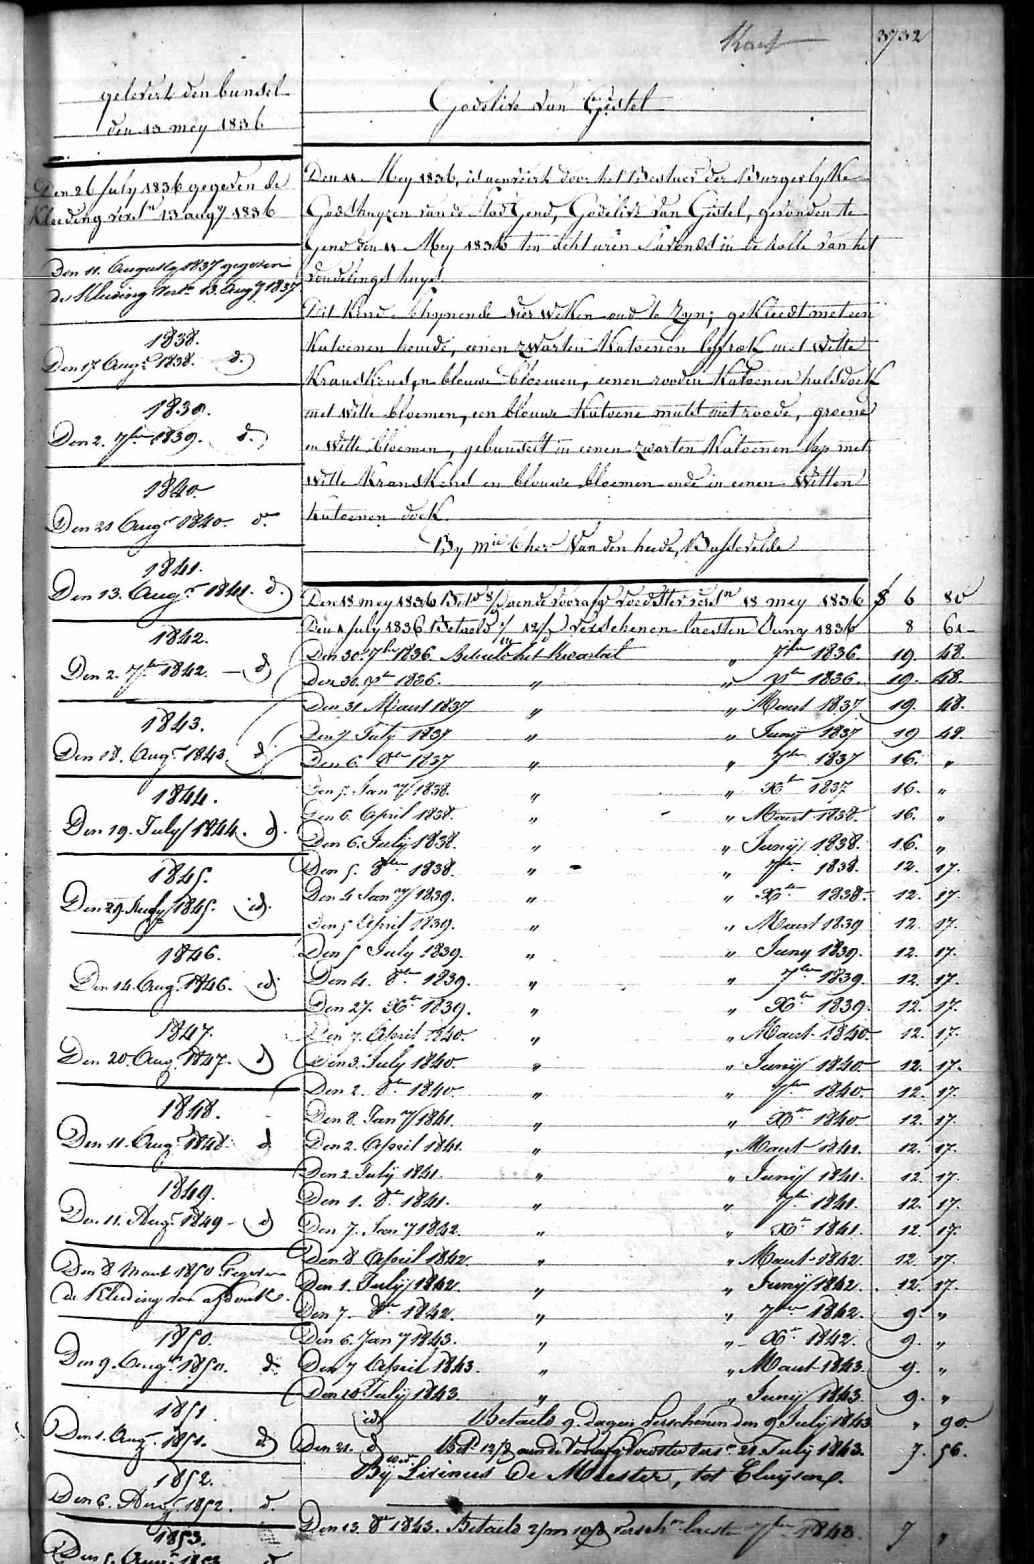 Kaart 3732
gelevert den bunsel
den 13 mey 1836
Den 26 July 1836 gegeven de
Kleeding verst.n 13 augy 1836
Den 11. Augusty 1837 gegeven
de Kleeding Verst. 13. Augy 1837
1838.
Den 17 Augt. 1838. d.
1839.
Den 2. 7ber 1839. d.
1840
Den 21 Augt 1840. d.
1841.
Den 13. Augt. 1841. d.
1842.
Den 2. 7br 1842. d.
1843.
Den 18. Augt. 1843. d.
1844.
Den 19. July 1844. d.
1845.
Den 29. July 1845. id.
1846.
Den 14. Aug. 1846. id.
1847.
Den 20. Aug. 1847. d
1848.
Den 11. Aug. 1848. d.
1849.
Den 11. Aug. 1849 d
Den 8 Maart 1850 Gegeven
de Kleeding van
1850.
Den 9. Augt. 1850. d.
1851.
Den 1. Augt. 1851. d
1852.
Den 6. Augt. 1852. d.
1853.
Godelive van Gistel
Den 11 Mey 1836, is aenveirt door het Bestuer der Burgerlyke
Godshuyzen van de Stad Gend, Godelive van Gistel, gevonden te
Gend den 11 Mey 1836 ten acht uren s'avonds in de rolle van het
vondelings huys.
Dit Kind schynende vier weken oud te zyn; gekleedt met een
Katoenen hemde, eenen zwarten Katoenen lyfrok met witte
Kranskens, en blouwe bloemen, eenen rooden Katoenen halsdoek
met witte bloemen, een blouwe Katoene muts met roode, groene
en witte bloemen, gebunselt in eenen zwarten Katoenen lap met
witte Kranskens en blouwe bloemen ende in eenen witten
Katoenen doek.
By Van den heede, Bassevelde
Den 18 mey 1836 aende voorafg voedster verst.n 18 mey 1836 $ 6 80
Den 1 july 1836 Betaeld verschenen laesten Juny 1836 8 61
Den 30. 7br 1836. Betaeld het Kwartael " 7ber 1836. 19. 48.
Den 30. Xbr 1836. " " Xbr 1836. 19. 48.
Den 31 Maart 1837 " " Maart 1837 19. 48.
Den 7 July 1837 " " Junij 1837 19 48.
Den 6. 8br 1837 " " 7br 1837 16. "
Den 5. Jany 1838. " " Xbr 1837 16. "
Den 6. April 1838. " " Maart 1838. 16. "
Den 6. July 1838. " " Junij 1838. 16. "
Den 5. 8ber 1838. " " 7ber 1838. 12. 17.
Den 4 Jany 1839. " " Xbr 1838. 12. 17.
Den 5 April 1839. " " Maart 1839 12. 17.
Den 5 July 1839. " " Juny 1839. 12. 17.
Den 4. 8br 1839. " " 7ber 1839. 12. 17.
Den 27. Xbr 1839. " " Xbr 1839. 12. 17.
Den 7. April 1840. " " Maart 1840. 12. 17.
Den 3. July 1840. " " Junij 1840. 12. 17.
Den 2. 8br 1840. " " 7br 1840. 12. 17.
Den 8. Jany 1841. " " Xbr 1840 12. 17.
Den 2. April 1841. " " Maart 1841. 12. 17.
Den 2. July 1841. " " Junij 1841. 12. 17.
Den 1. 8br 1841. " " 7br 1841. 12. 17.
Den 7. Jany 1842. " " Xbr 1841. 12. 17.
Den 8 April 1842. " " Maart 1842. 12. 17.
Den 1. July 1842. " " Junij 1842. 12. 17.
Den 7. 8br 1842. " " 7ber 1842. 9. "
Den 6. Jany 1843. " " Xbr 1842. 9. "
Den 7 April 1843. " " Maart 1843. 9. "
Den 10 July 1843. " " Junij 1843. 9. "
id Betaeld 9. dagen verschenen den 9 July 1843 " 90.
Den 21. d. aende voorafg Voedster verst. 21 July 1843. 7. 56.
Bij Livinus De Meester, tot Cluysen.
Den 13. 8br 1843. Betaeld versch.n laeste 7br 1843. 7 "